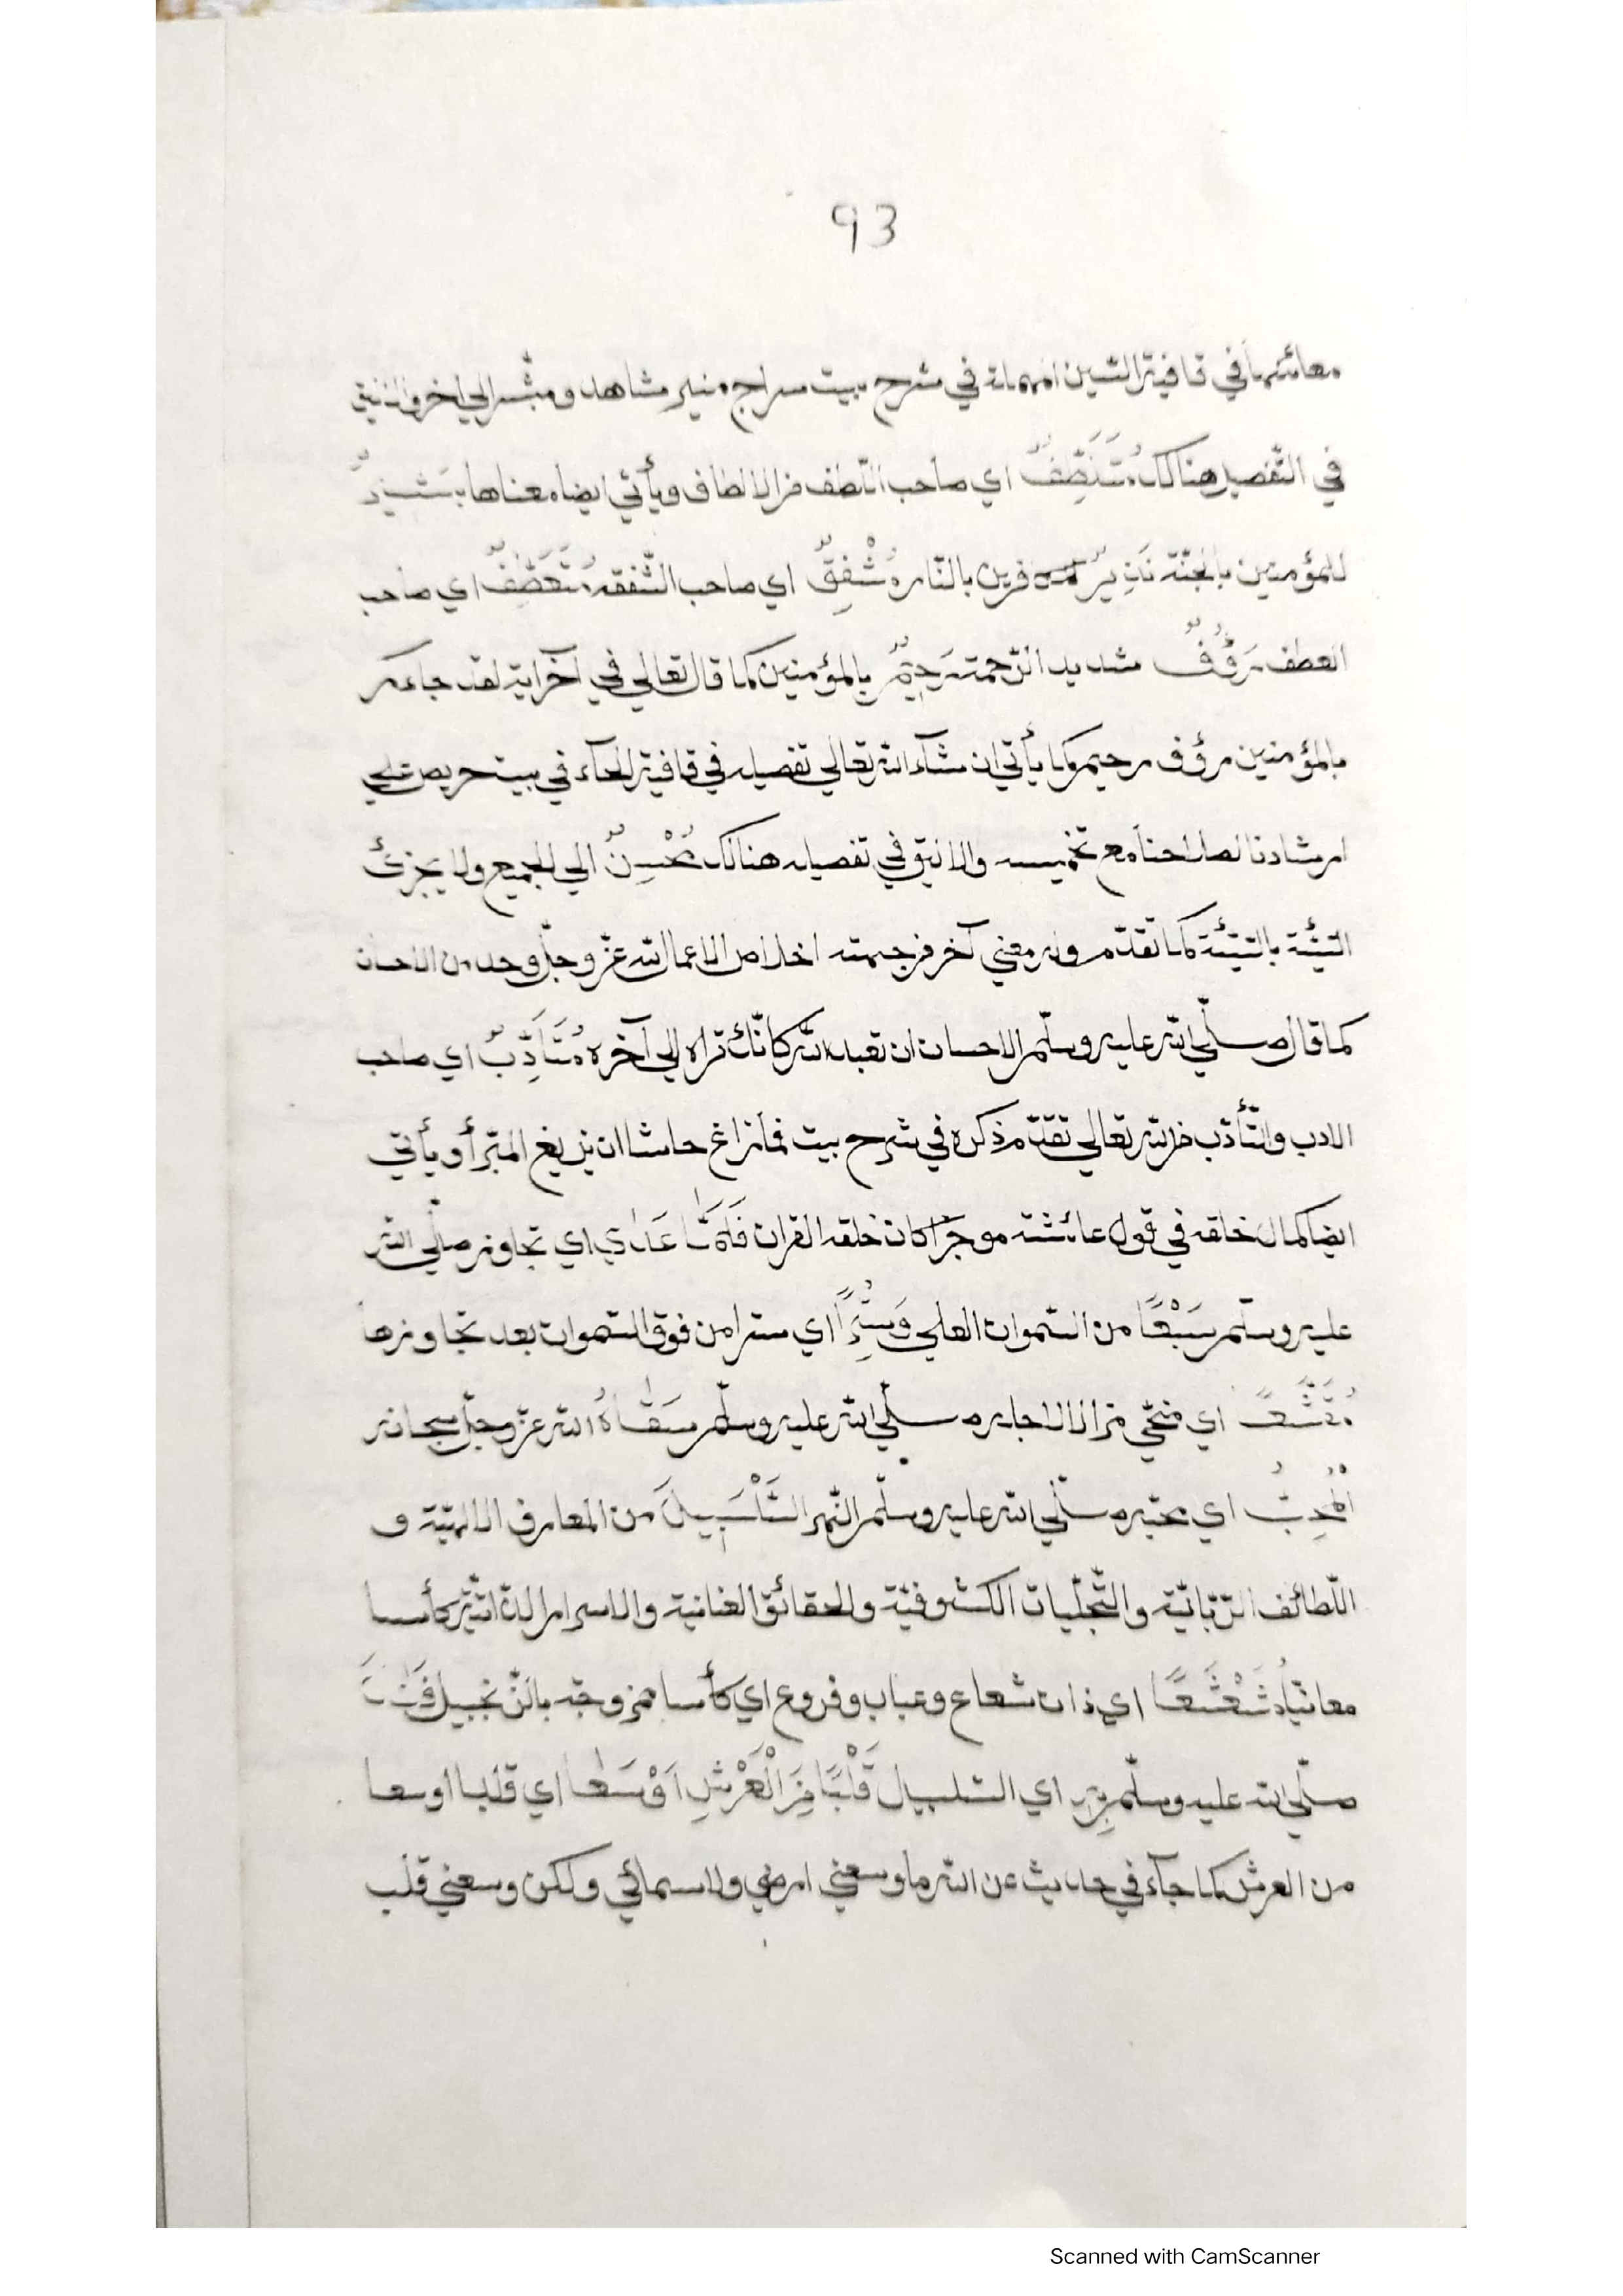 93
معانيها في قافية السّين المهملة في شرح بيت سراج منير مشاهد ومبشّر الي اخر والانيق
في التّفصيل هنالك مُتَلَطِّفٌ اي صاحب اللّطف من الالطاف ويأتي ايضا معناها بَشِيرٌ
للمؤمنين بالجنّة نَذِيرٌ للكافرين بالنّار مُشْفِقٌ اي صاحب الشّفقة مُتَعَطِّفٌ اي صاحب
العطف رَؤُفٌ شديد الرّحمة رَحِيمٌ بالمؤمنين كما قال تعالي في آخر اية لقد جاءكم
بالمؤمنين رؤف رحيم كما يأتي ان شآء الله تعالي تفصيله في قافية الحآء في بيت حريص علي
ارشادنا لصلاحنا مع تخميسه والانيق في تفصيله هنالك مُحْسِنٌ الي الجميع ولا يجزئ
السّيّئة بالسّيّئة كما تقدّم وله معني آخر فرجمته اخلاص الاعمال لله عزّ وجلّ وحده من الاحسان
كما قال صلّي الله عليه وسلّم الاحسان ان تعبد الله كانّك تراه الي آخره مُتَاَدِّبٌ اي صاحب
الادب والتّأدّب لله تعالي تقدّم ذكره في شرح بيت فما زاغ حاشا ان يزيغ المبّرأ ويأتي
ايضا كمال خلقه في قول عائشة موجزا كان خلقه القران فَلَمَّا عَدٰي اي تجاوز صلّي الله
عليه وسلّم سَبْعًا من السّموات العلي وَسُتِرًا اي سترا من فوق السّموات بعد تجاوزها
اي صلّي الله عليه وسلّم سَقٰاهُ الله عزّ وجلّ سبحانه
الْمُحِبُّ اي محبّه صلّي الله عليه وسلّم النّهر السَّلْسَبِيلَ من المعارف الالهيّة و
اللّطائف الرّبّانيّة والتّجلّيات الكشوفيّة والحقائق العنانية والاسرار اللدنّيّة كأسا
معانيا مُشَعْشَعًا اي ذات شعاع وعباب وفروع اي كأسا ممزوجة بالزّنجبيل فَبٰتَ
صلّي الله عليه وسلّم بِهِ اي السّلسبيل قَلْبًا مِنَ الْعَرْشِ اَوْسَعٰا اي قلبا اوسعا
من العرش كما جآء في حديث عن الله ما وسعني ارضي ولا سمائي ولكن وسعني قلب
Scanned with CamScanner